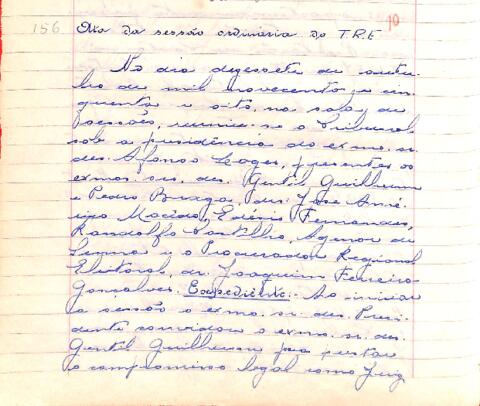 156 Ata da sessão ordinária do T.R.E 10
No dia dezessete de outu-
bro de mil novecentos e cin-
quenta e oito, na sala de
sessões, reuniu-se o Tribunal
sob a presidência do exmo. sr.
des. Afonso Lages, presentes os
exmos. srs. des. Gentil Guilherme
e Pedro Braga, drs. José Amé-
rico Macêdo, Edésio Fernandes,
Randolfo Agenor de
Senna e o Procurador Regional
Eleitoral, dr. Joaquim Ferreira
Gonçalves. Expediente:- Ao iniciar
a sessão o exmo. sr. des. Presi-
dente convidou o exmo. sr. des.
Gentil Guilherme para prestar
o compromisso legal como Juiz